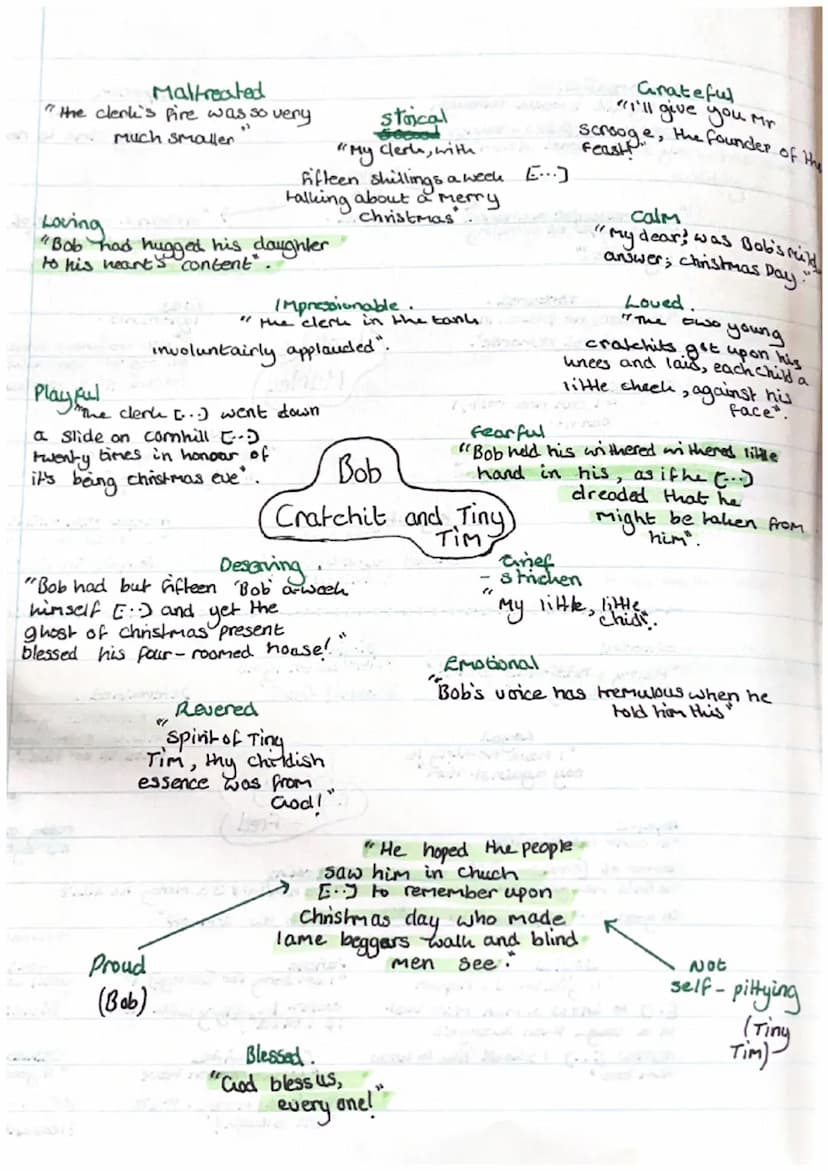 Maltreated
"the clerk's fire was so very
much smaller"
stoical
"My clerk, with
fifteen shillings a week [...]
talking about a merry
christmas".
Grateful
"I'll give you Mr
scrooge, the founder of the
feast!"
Loving
"Bob had hugged his daughter
to his heart's content".
calm
"My dear; was Bob's mild
answer; christmas Day."
Impressionable.
"the clerk in the tank
involuntairly applauded".
Loved.
"The two young
cratchits got upon his
knees and laid, each child a
little cheek, against his
face".
Playful
"The clerk [...] went down
a slide on cornhill [...]
twenty times in honour of
it's being christmas eve".
Fearful
"Bob held his withered withered little
hand in his, as if he [...]
dreaded that he
might be taken from
him".
Bob
Cratchit and Tiny
Tim
Deserving.
"Bob had but fifteen 'Bob' a-week
himself [...] and yet the
ghost of christmas present
blessed his four-roomed house!"
Grief
- stricken
"My little, little
child".
Emotional
"Bob's voice has tremulous when he
told him this"
Revered
"Spirit of Tiny
Tim, thy childish
essence was from
God!"
"He hoped the people
saw him in chuch
[...] to remember upon
Christmas day who made
lame beggers walk and blind
men see."
Proud
(Bob)
Not
self-pittying
(Tiny
Tim)
Blessed.
"God bless us,
every one!"